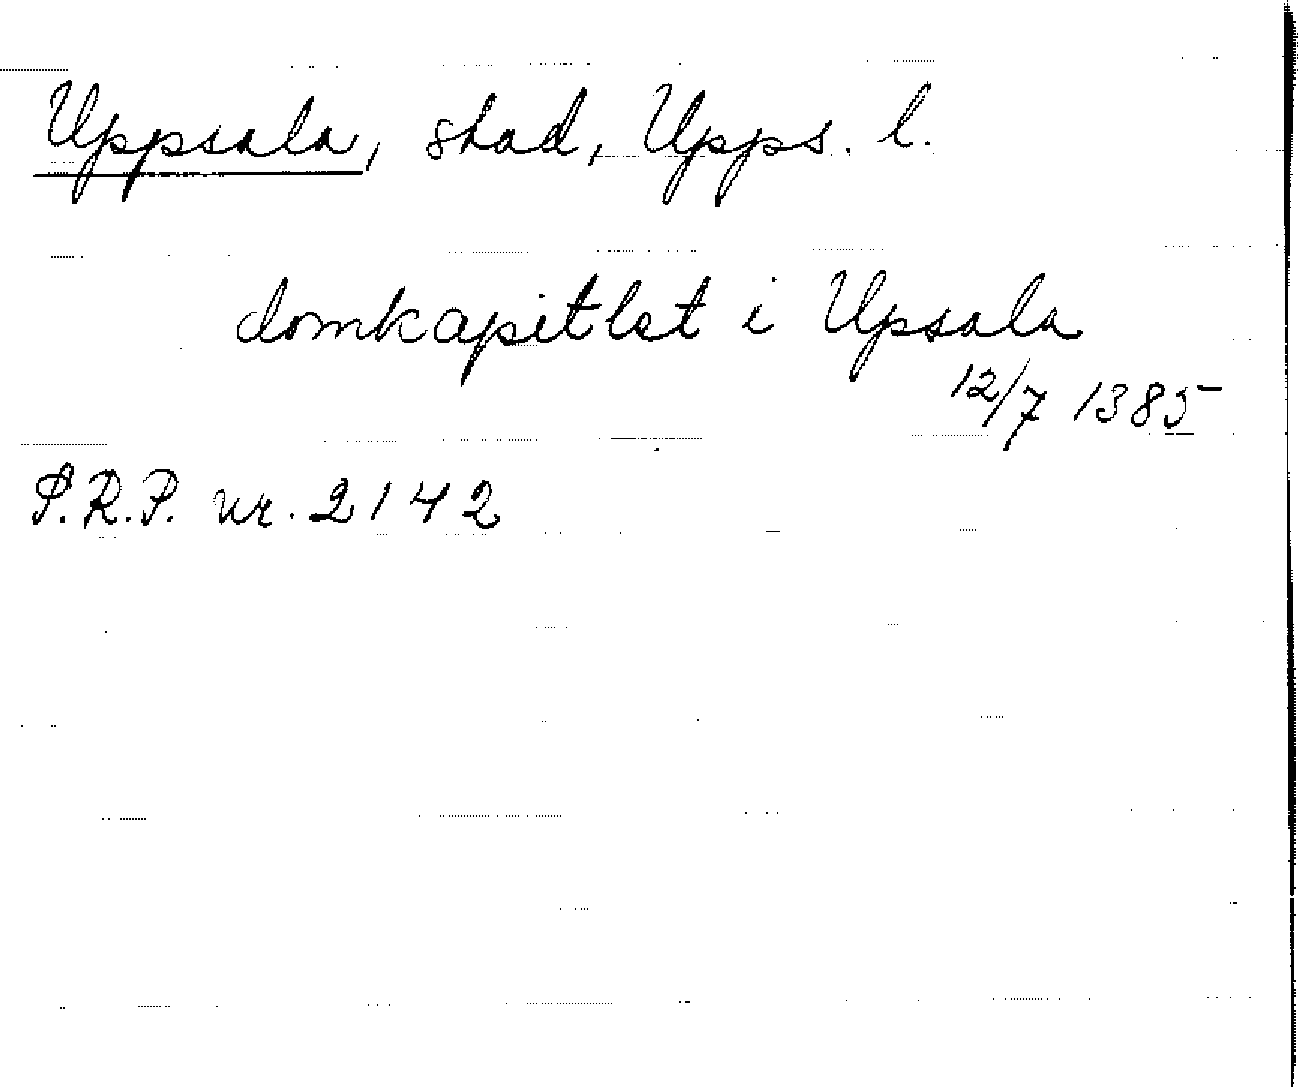 Uppsala, stad, Upps. l.
domkapitlet i Upsala
12/7 1385
S.R.P. nr. 2142